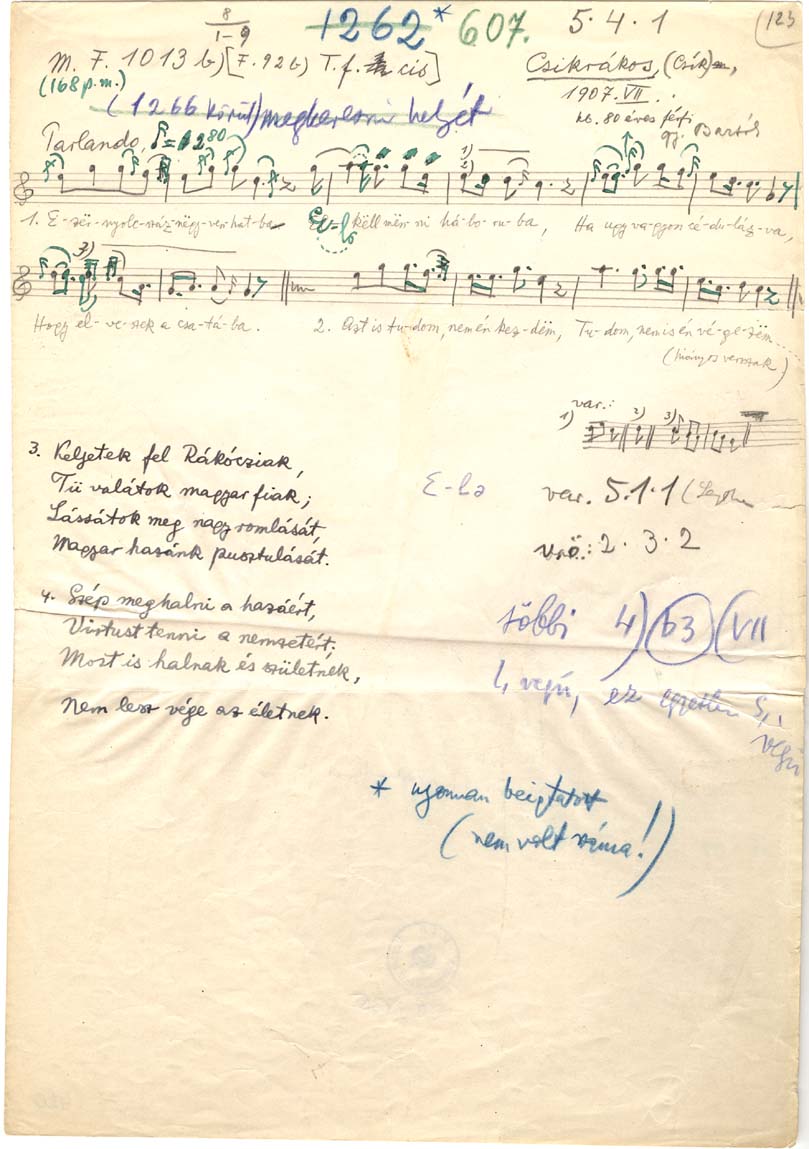 8
1-9
1262* 607. 5·4·1
123
M. F. 1013 b) [F. 92 b) T. f. cis]
Csikrákos, (Csík),
(168 p.m.)
1907. VII.
(1266 körül) megkeresni helyét
kb. 80 éves férfi
gy. Bartók
Parlando, ♪=
1. E-zër-nyolc-száz-nëgy-ven-hat-ba El këll mën-ni há-bo-ru-ba, Ha ugy va-gyon cé-du-láz-va,
3)
Hogy el-ve-szek a csa-tá-ba. 2. Azt is tu-dom, nem én kez-dëm, Tu-dom, nem is én vé-ge-zëm...
(hiányos versszak.)
var.:
1) 2) 3)
3. Keljetek fel Rákócziak,
Tü valátok magyar fiak;
Lássátok meg nagy romlását,
Magyar hazánk pusztulását.
var. 5·1·1
2·3·2
4. Szép meghalni a hazáért,
Virtust tenni a nemzetért;
Most is halnak és születnek,
Nem lesz vége az életnek.
többi 4) b3 (VII
1, végű, ez egyetlen 5, végű
* ujonnan beigtatott
(nem volt száma!)